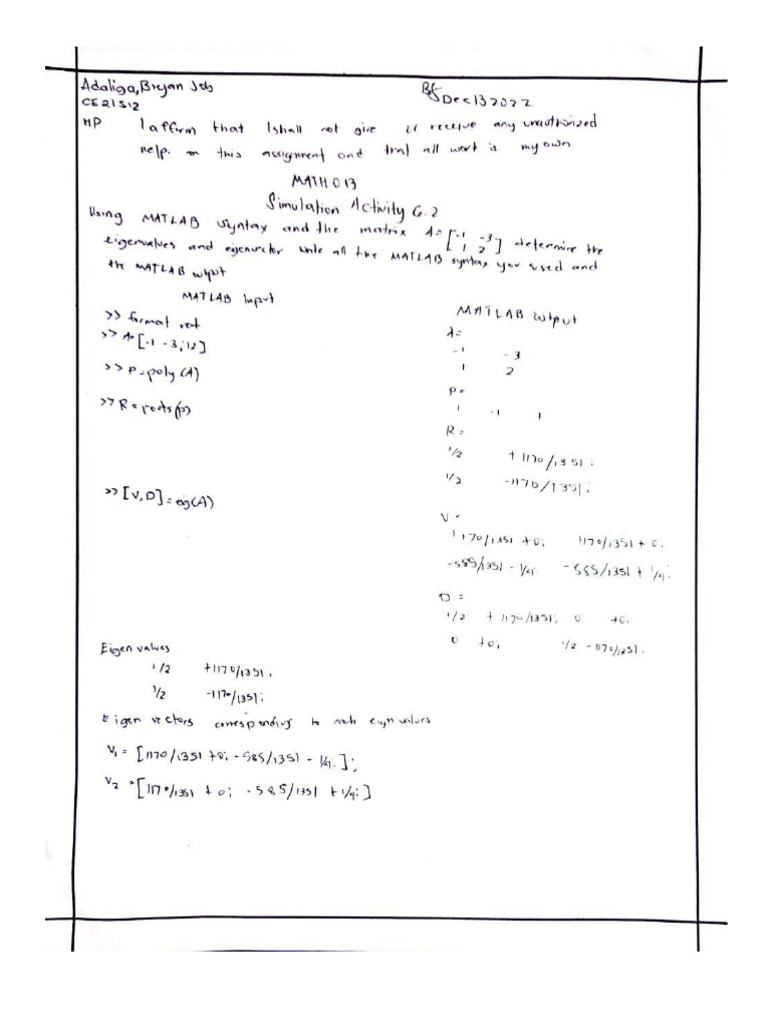 Adaliga, Bryan Jeb
Dec 13 2022
CE21S12
HP I affirm that I shall not give or receive any unauthorized
help. on this assignment and that all work is my own
MATH 013
Simulation Activity 6.2
Using MATLAB syntax and the matrix A=[-1 -3 1 2] determine the
eigenvalues and eigenvector write all the MATLAB syntax you used and
the MATLAB output
MATLAB Input
>> format rat
>> A=[-1 -3;12]
>> P=poly(A)
>> R=roots(p)
>> [V,D]=eig(A)
MATLAB output
A=
-1 -3
1 2
P=
1 -1 1
R=
1/2 +1170/1351i
1/2 -1170/1351i
V=
1170/1351 +0i 1170/1351 + 0i
-585/1351 - 1/4i -585/1351 + 1/4i
D=
1/2 + 1170/1351i 0 +0i
0 +0i 1/2 -1170/1351i
Eigen values
1/2 +1170/1351i
1/2 -1170/1351i
Eigen vectors corresponding to each eigen values
V1 = [1170/1351 +0i -585/1351 - 1/4i];
V2 =[1170/1351 + 0i -585/1351 +1/4i]